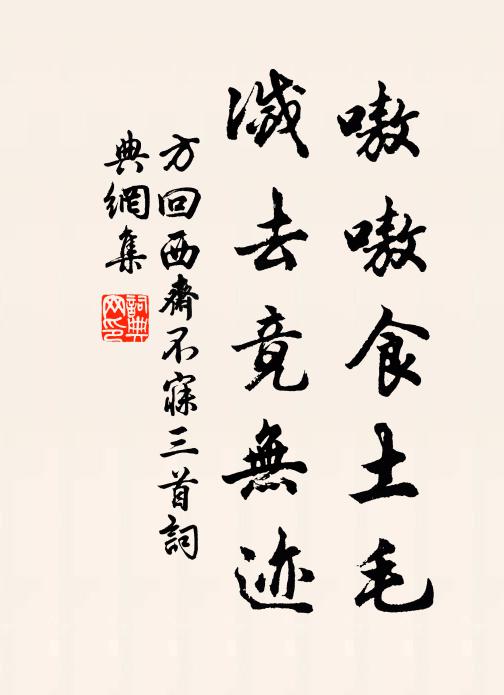 嗷嗷食土毛
滅去竟無迹
方回西齋不寐三首詞
典網集
詞典网印